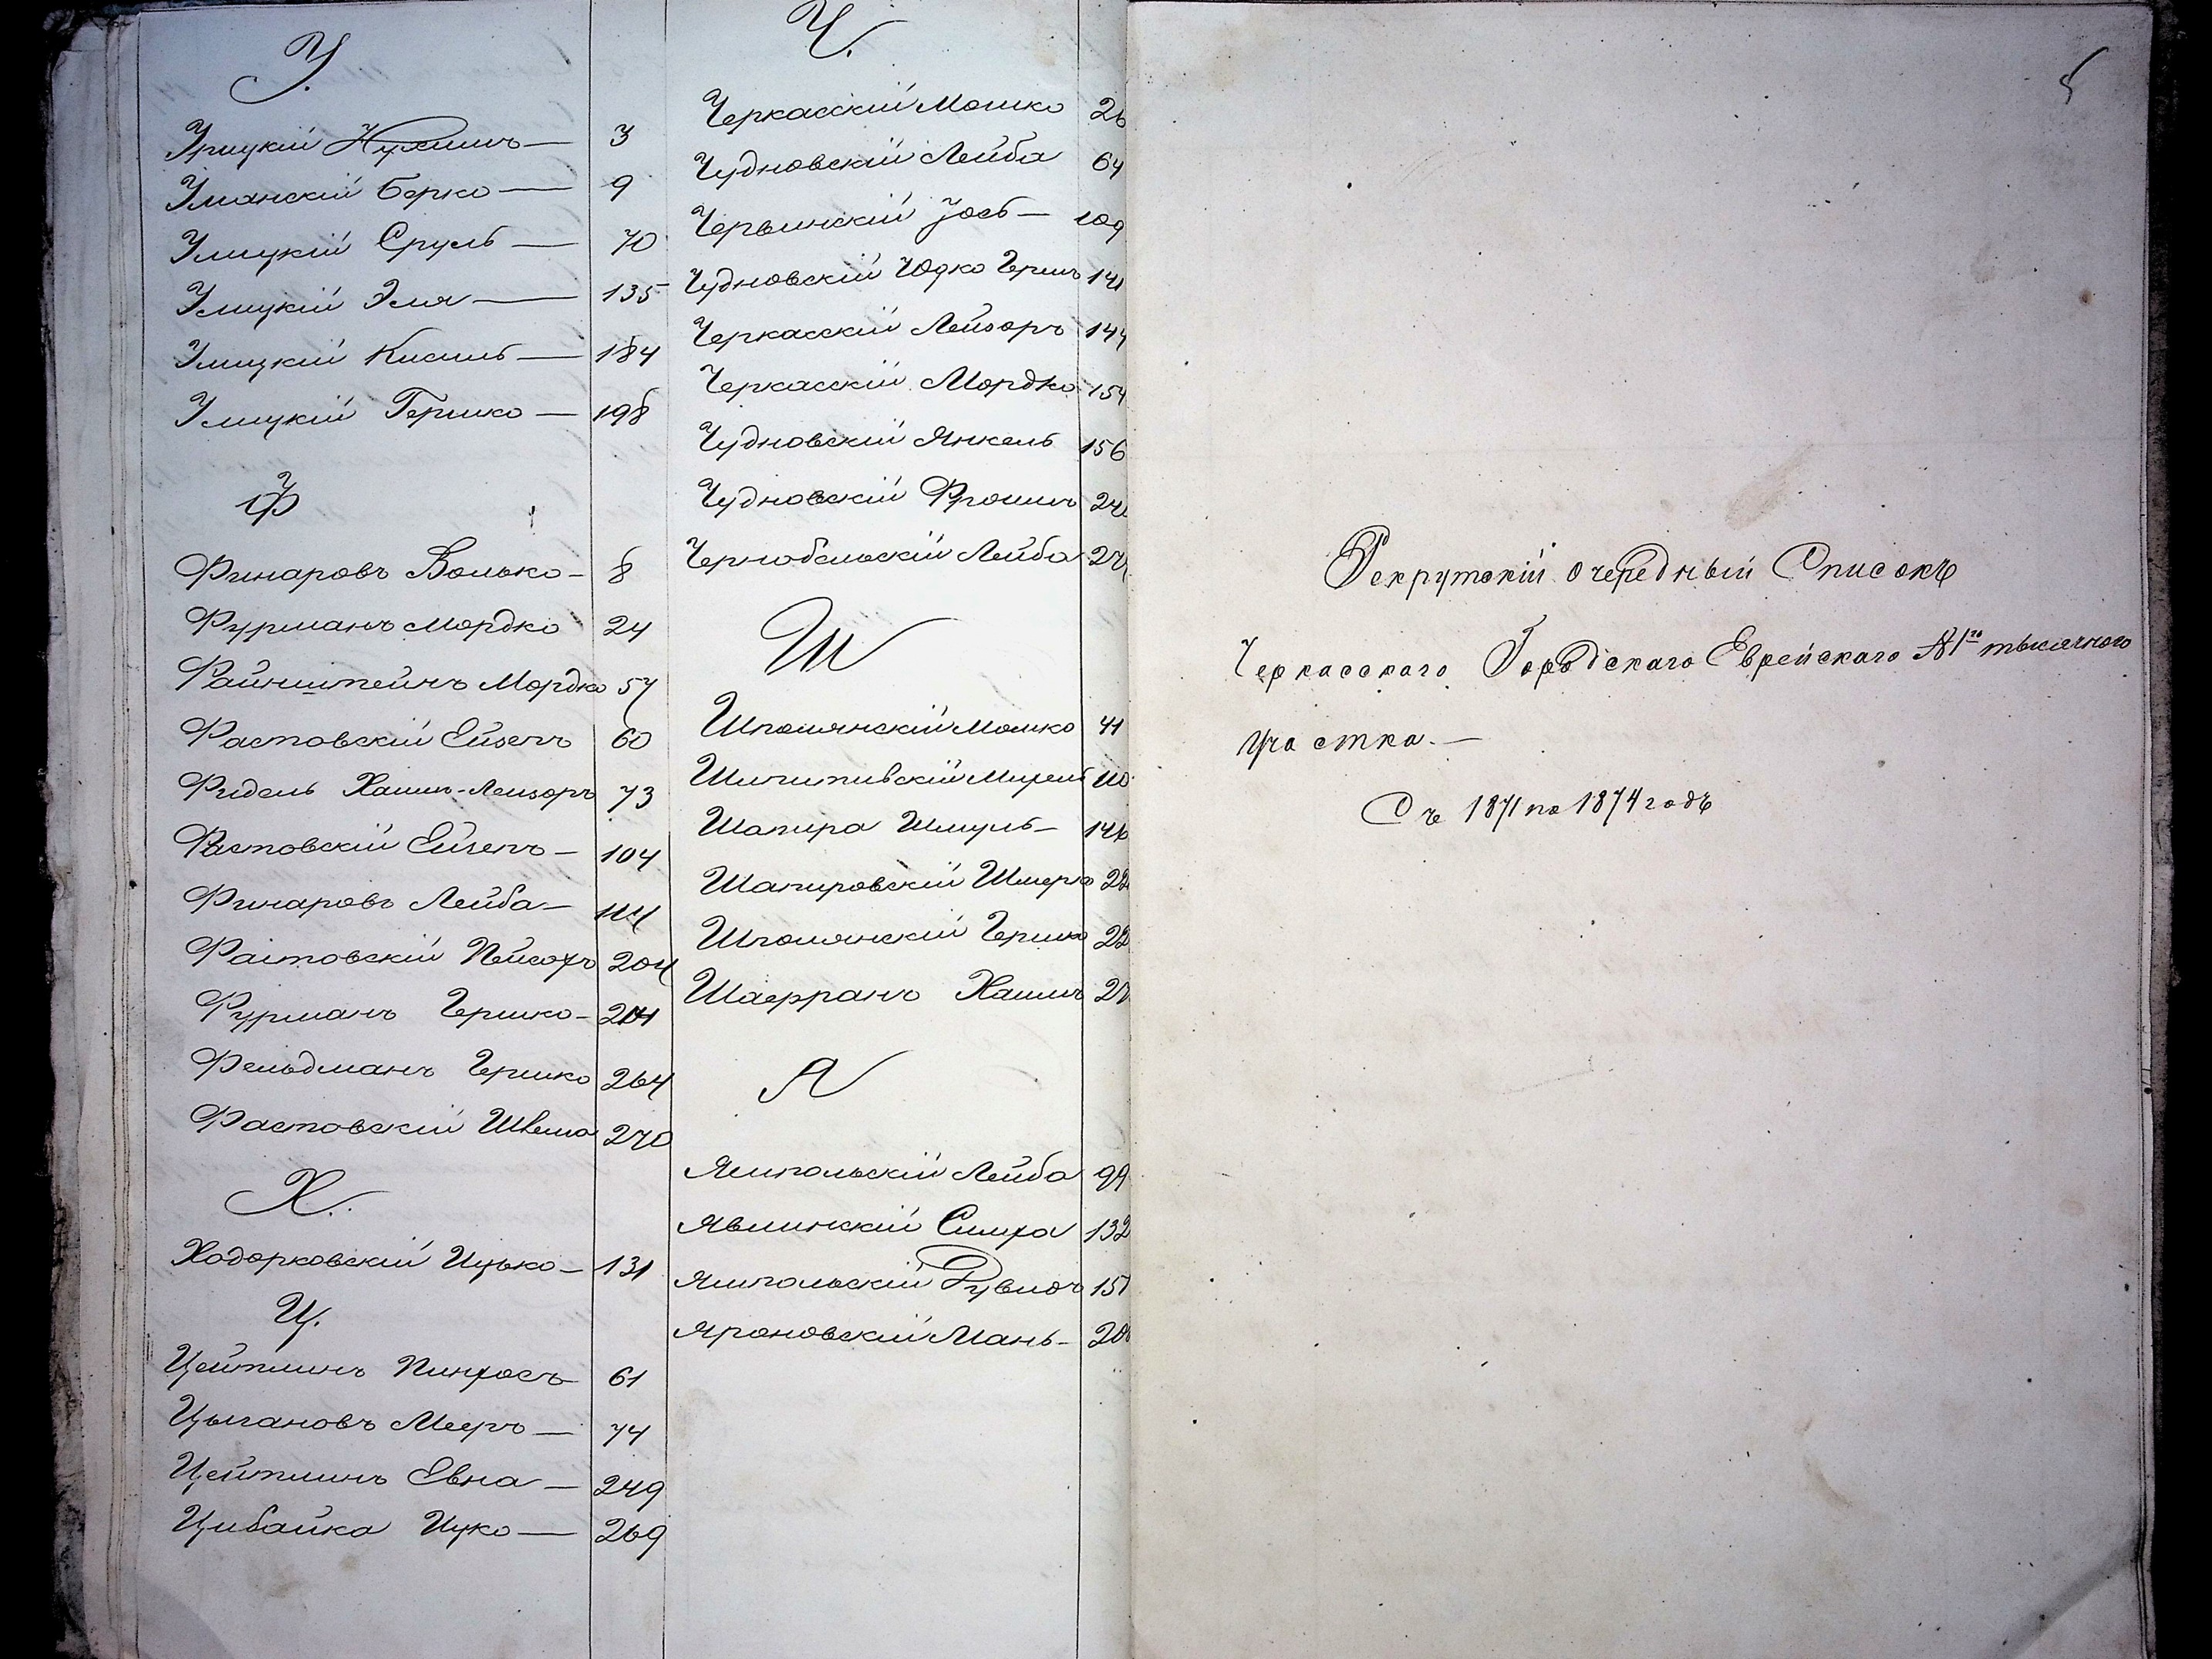 У.
Урицкій Нухимъ — 3
Уманскій Берко — 9
Улицкій Сруль — 70
Улицкій Эля — 135
Улицкій Кисиль — 184
Улицкій Гершко — 198
Ф
Финаровъ Волько — 8
Фурманъ Мордко 24
Файнштейнъ Мордко 57
Фастовскій Ейзеръ 60
Фидель Хаимъ-Лейзоръ 73
Фастовскій — 104
Финаровъ Лейба —
Фастовскій 204
Фурманъ Гершко —
Фельдманъ Гершко 264
Фастовскій Швема 270
Х.
Ходорковскій Ицько — 131
Ц.
Цейтлинъ Пинхосъ 61
Цыгановъ Мееръ — 74
Цейтлинъ Евна — 249
Цибайка Ицко — 269
Ч.
Черкасскій Мошко 26
Чудновскій Лейба 64
Червинскій Іось — 109
Чудновскій Юдко Гершъ 141
Черкасскій Лейзоръ 144
Черкасскій Мордко 154
Чудновскій Янкель 156
Чудновскій Фроимъ
Чернобельскій Лейба
Ш
Шполянскій Мошко 41
Шапира Шмуль —
Шапировскій Шмерко
Шполянскій Гершко
Шаерранъ Хаимъ
Я
Ямпольскій Лейба 99
Явлинскій Симха 132
Ямпольскій Рувинъ 157
Яроновскій Мань —
5
Рекрутскій очередный Списокъ
Черкасскаго Городскаго Еврейскаго №1го тысячного
участка. —
Съ 1871 по 1874 годъ